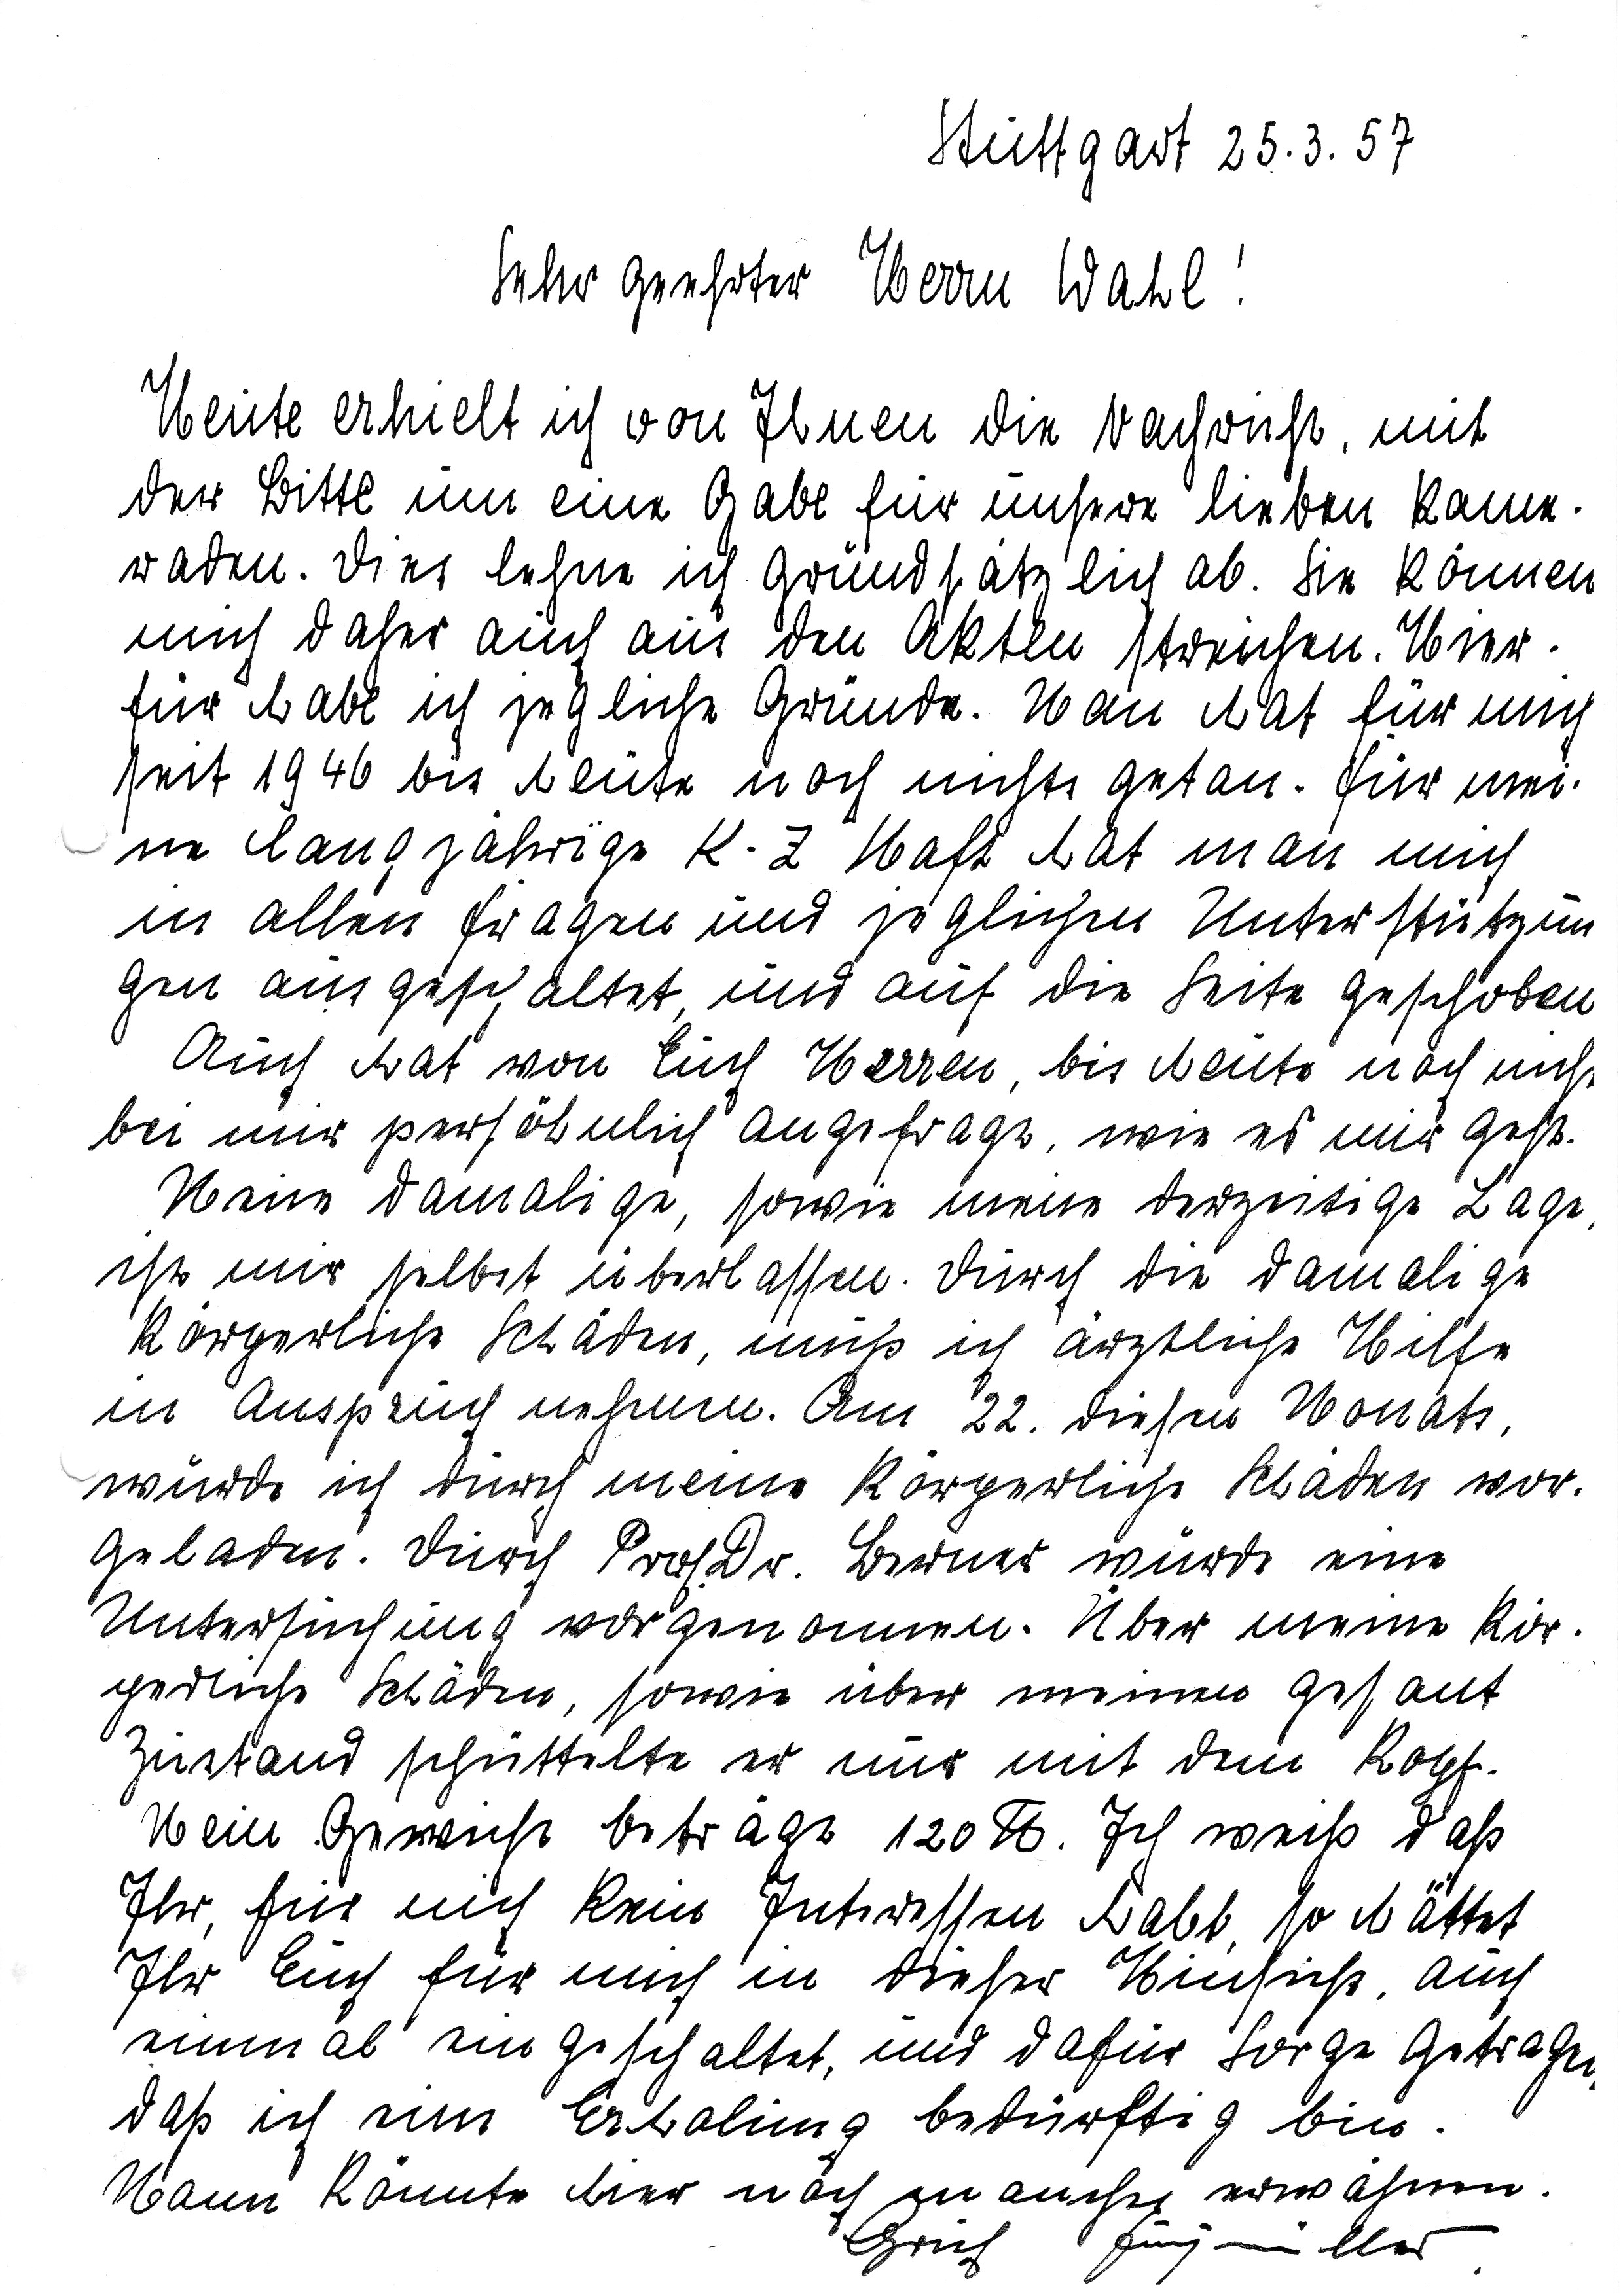 Stuttgart 25.3.57
Sehr geehrter Herrn Wahl!
Heute erhielt ich von Ihnen die Nachricht, mit
der Bitte um eine Gabe für unsere lieben Kame-
raden. Dies lehne ich Gründsätzlich ab. Sie können
mich daher auch aus den Akten streichen. Hier-
für habe ich jegliche Gründe. Man hat für mich
seit 1946 bis heute noch nichts getan. Für mei-
ne langjährige K-Z Haft hat man mich
in allen Fragen und jeglichen Unterstützun
gen ausgeschaltet, und auf die Seite geschoben
Auch hat von Euch Herren, bis heute noch nicht
bei mir persöhnlich angefragt, wie es mir geht.
Meine damalige, sowie meine derzeitige Lage,
ist mir selbst überlassen. Durch die damalige
Körperliche Schäden, muß ich ärztliche Hilfe
in Anspruch nehmen. Am 22. diesen Monats,
wurde ich durch meine Körperliche Schäden vor-
geladen. Durch Prof. Dr. Berner wurde eine
Untersuchung vorgenommen. Über meine Kör-
perliche Schäden, sowie über meinen Gesamt
Zustand schüttelte er nur mit dem Kopf.
Mein Gewicht beträgt 120 ℔. Ich weiß daß
Ihr, für mich kein Interessen habt, so hättet
Ihr Euch für mich in dieser Hinsicht, auch
einmal eingeschaltet, und dafür Sorge getragen,
daß ich eine Erholung bedürftig bin.
Mann könnte hier noch manches erwähnen.
Erich